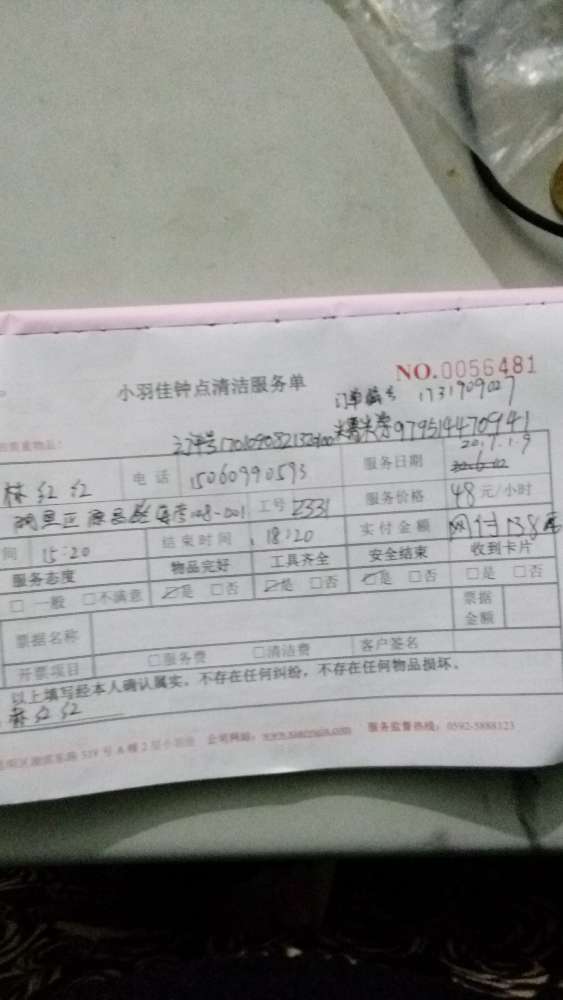 NO.0056481
小羽佳钟点清洁服务单
订单编号 1731909027
美团大众979514470941
林红红 电话 15060990593 服务日期 2017.1.9
工号 2331 服务价格 48元/小时
间 15:20 结束时间 18:20 实付金额 网付138元
服务态度 物品完好 工具齐全 安全结束 收到卡片
□一般 □不满意 ☑是 □否 ☑是 □否 ☑是 □否 □是 □否
票据名称 票据金额
开票项目 □服务费 □清洁费 客户签名
以上填写经本人确认属实。不存在任何纠纷，不存在任何物品损坏。
林红红
519号A幢2层小羽佳 公司网站： 服务监督热线：0592-5888123